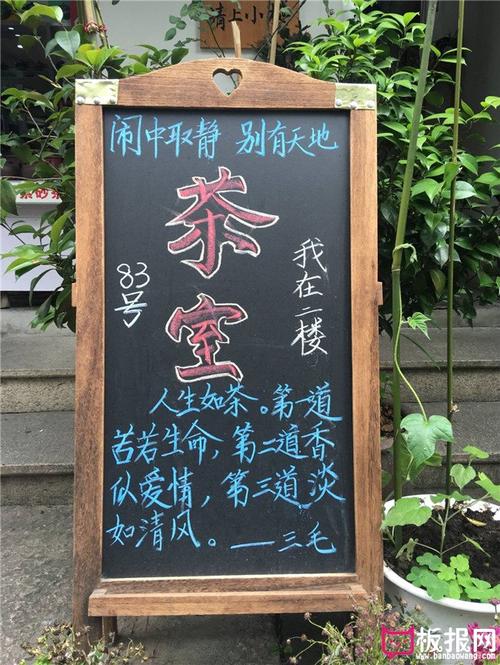 清上小
闹中取静 别有天地
茶室
83号
我在二楼
人生如茶。第一道
苦若生命，第二道香
似爱情，第三道淡
如清风。——三毛
板报网
www.banbaowang.com